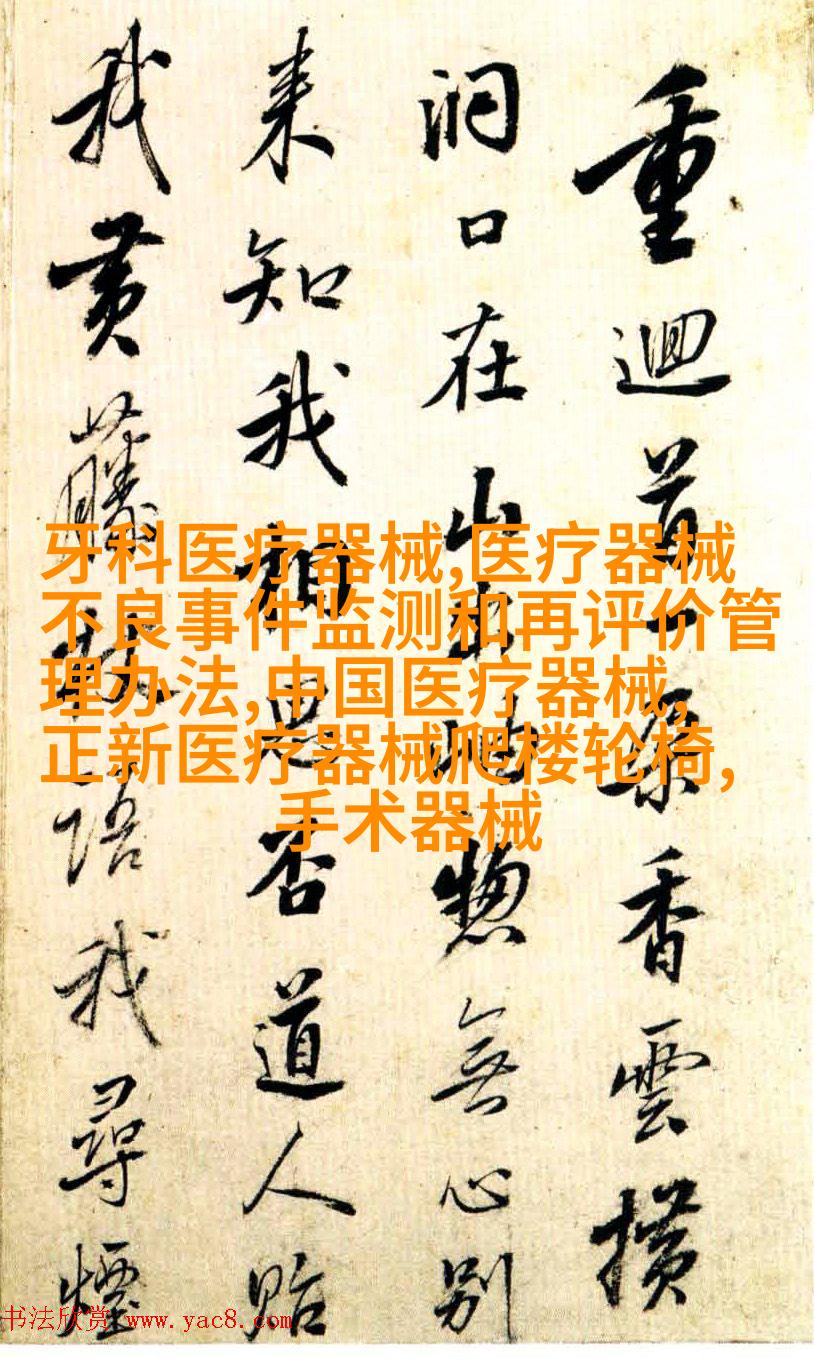 重迴首一朵香雲横
洞口在山出惣無心别
来知我相思否道人貽
我黄藤故语我尋煙
牙科医疗器械,医疗器械
不良事件监测和再评价管
理办法,中国医疗器械,
正新医疗器械爬楼轮椅,
手术器械
书法欣赏 www.yac8.com